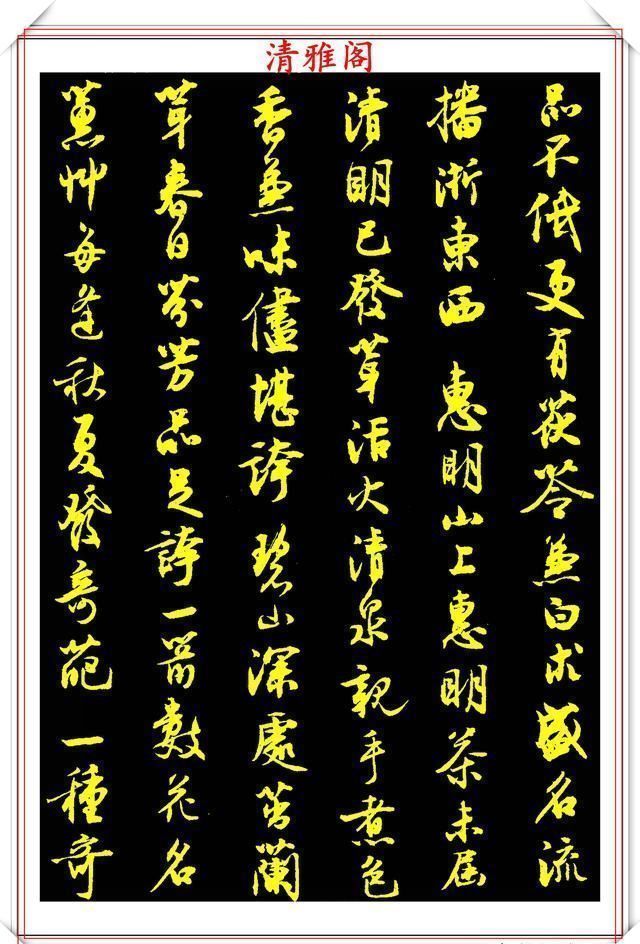 清雅阁
品不低更有茯苓兼白朮盛名流
播浙東西 惠明山上惠明茶未屆
清明已發芽活火清泉親手煮色
香兼味儘堪誇 碧山深處茁蘭
芽春日芬芳品足誇一箭數花名
蕙艸每逢秋夏發奇葩 一種奇